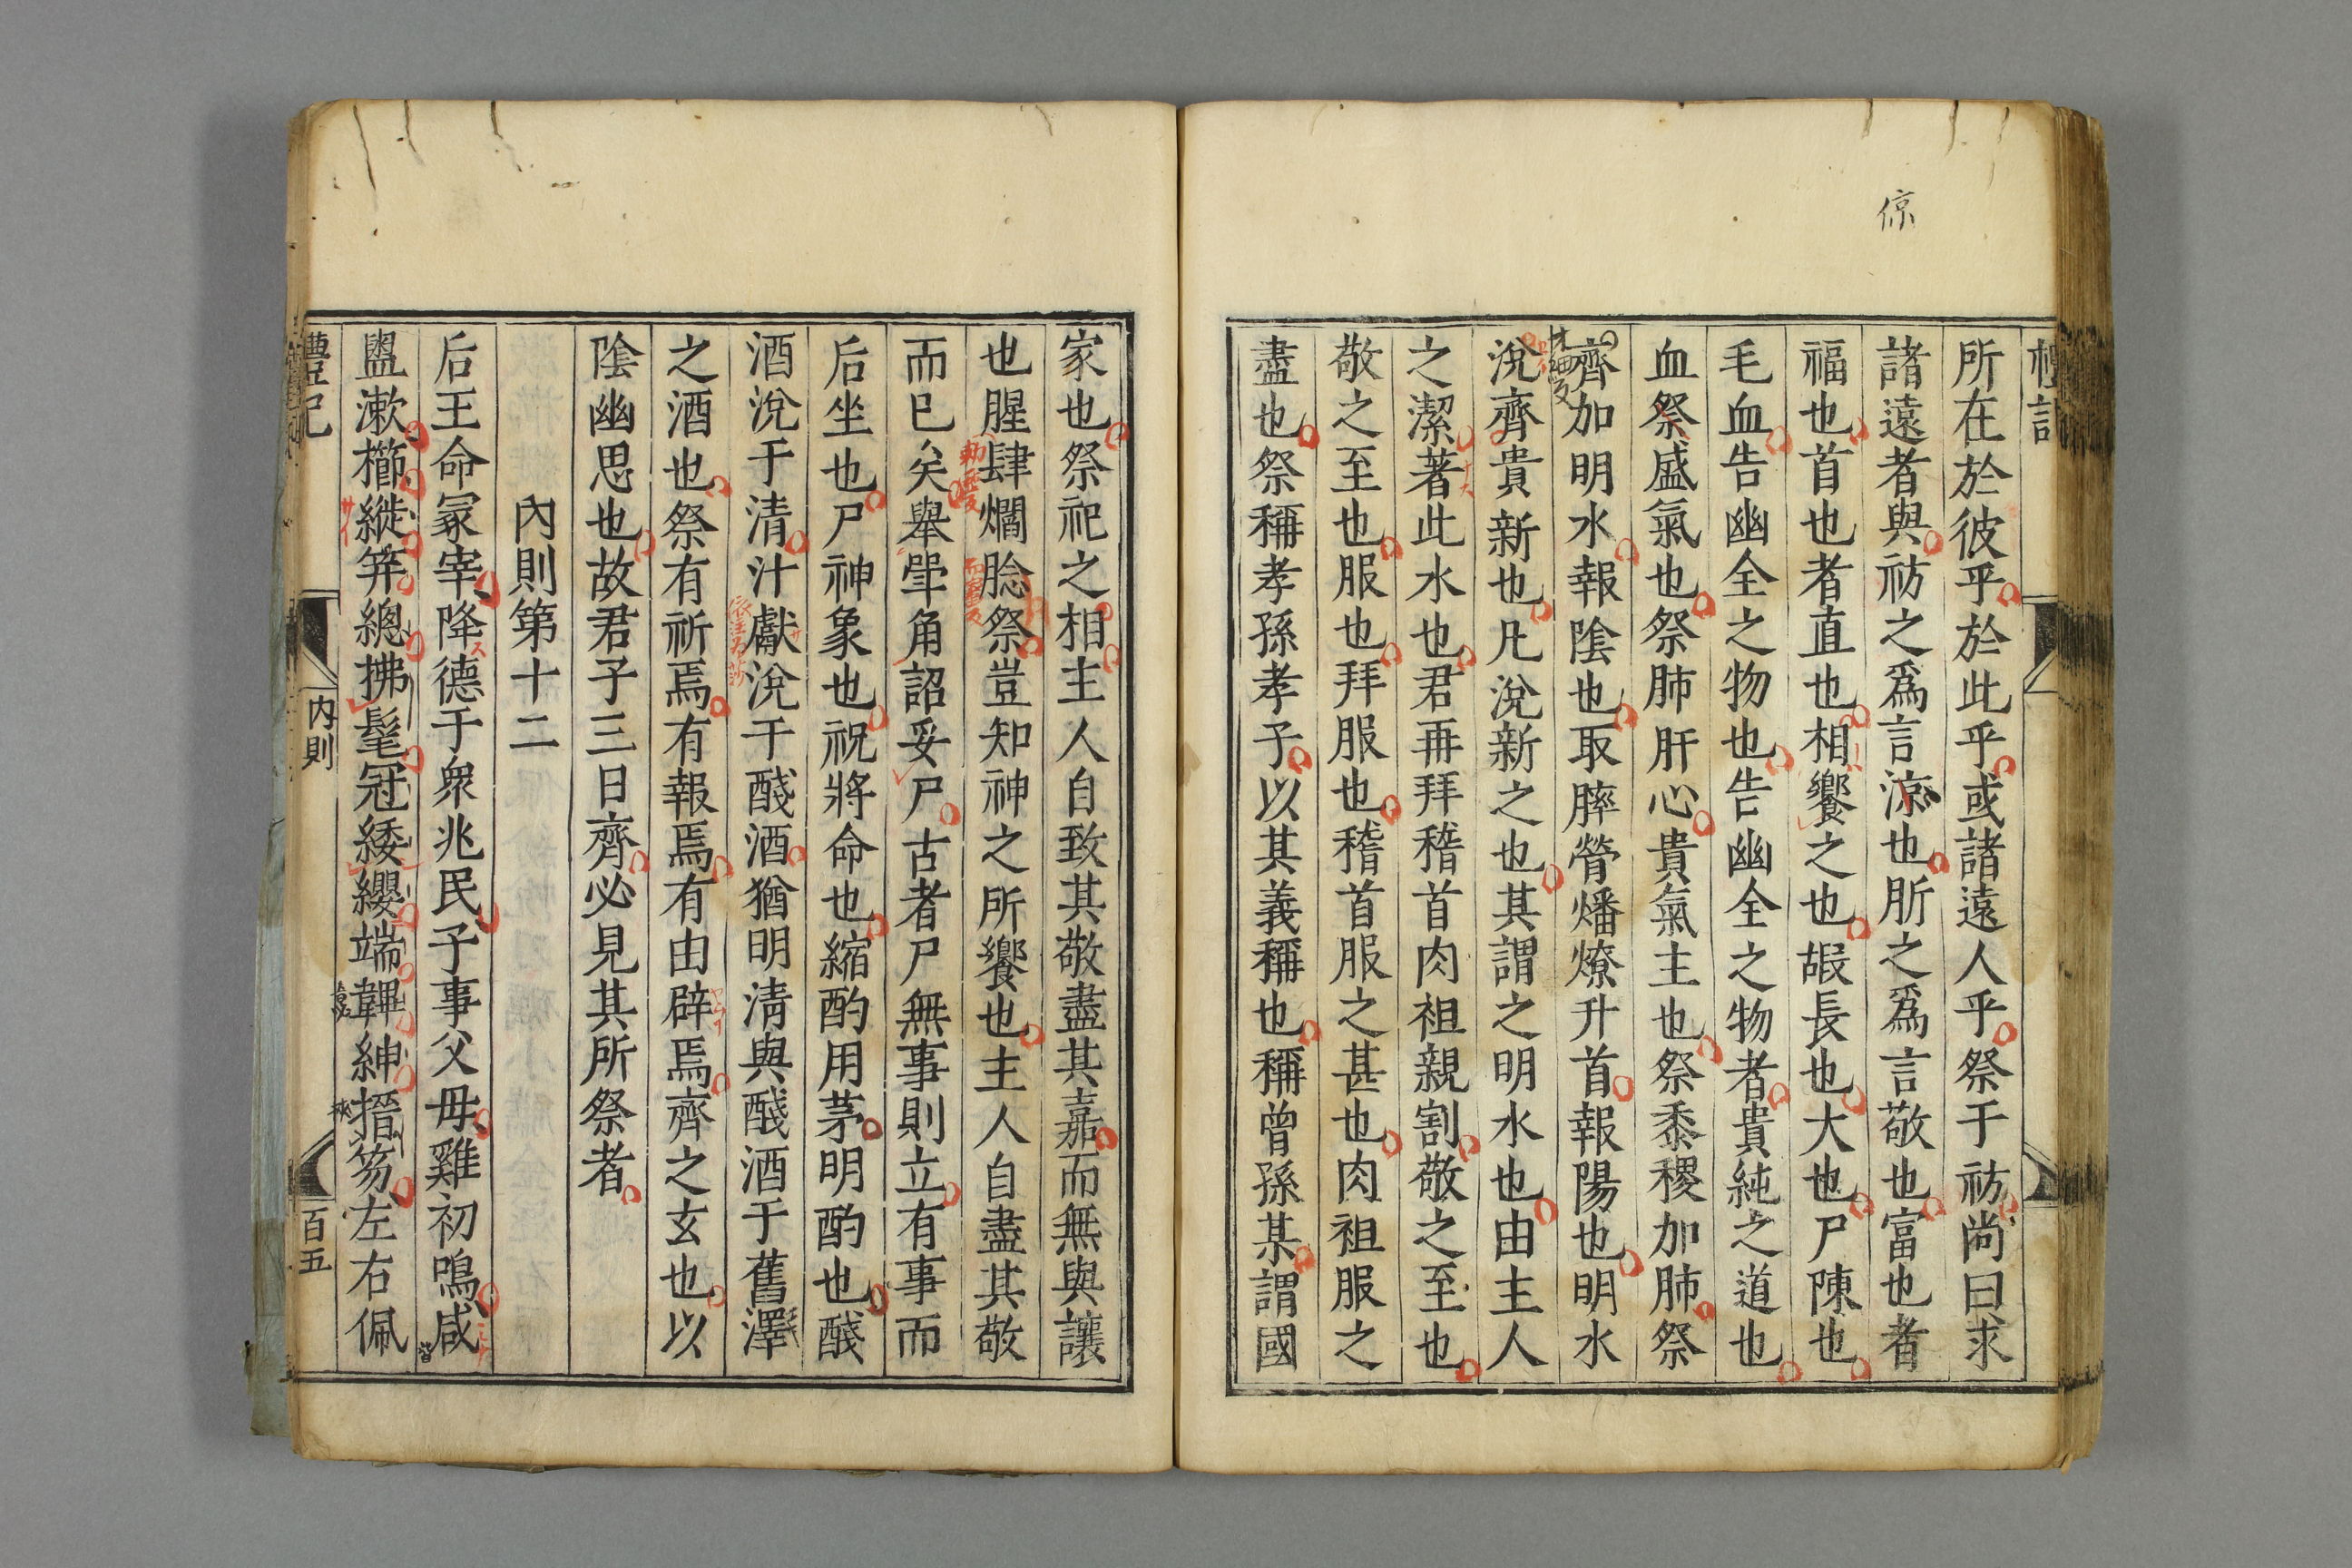 倞
禮記
所在於彼乎於此乎或諸遠人乎祭于祊尚曰求
諸遠者與祊之爲言涼也肵之爲言敬也富也者
福也首也者直也相饗之也嘏長也大也尸陳也
毛血告幽全之物也告幽全之物者貴純之道也
血祭盛氣也祭肺肝心貴氣主也祭黍稷加肺祭
齊加明水報陰也取膟膋燔燎升首報陽也明水
涗齊貴新也凡涗新之也其謂之明水也由主人
之潔著此水也君再拜稽首肉袒親割敬之至也
敬之至也服也拜服也稽首服之甚也肉袒服之
盡也祭稱孝孫孝子以其義稱也稱曾孫某謂國
家也祭祀之相主人自致其敬盡其嘉而無與讓
也腥肆爓腍祭豈知神之所饗也主人自盡其敬
而已矣舉斝角詔妥尸古者尸無事則立有事而
后坐也尸神象也祝將命也縮酌用茅明酌也醆
酒涗于清汁獻涗于醆酒猶明淸與醆酒于舊澤
之酒也祭有祈焉有報焉有由辟焉齊之玄也以
陰幽思也故君子三日齊必見其所祭者
內則第十二
后王命冡宰降德于衆兆民子事父毋雞初鳴咸
盥漱櫛縰筓總拂髦冠緌纓端韠紳搢笏左右佩
禮記
內則
百五